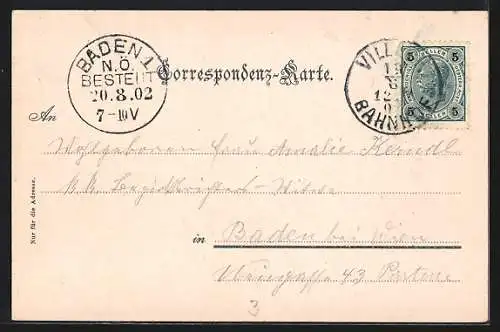 BADEN 1
N.Ö.
BESTELLT
20.8.02
7-10V
Correspondenz-Karte.
VILL
12
BAHNHOF
5 5
HELLER
5 5
An
Wohlgeboren Frau Amalie Kerndl
k. k. Witwe
Nur für die Adresse.
in Baden bei Wien
43 Parterre
3